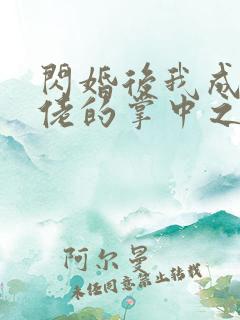 閃婚後我成
佬的掌中之
阿尔曼
未经同意禁止转载